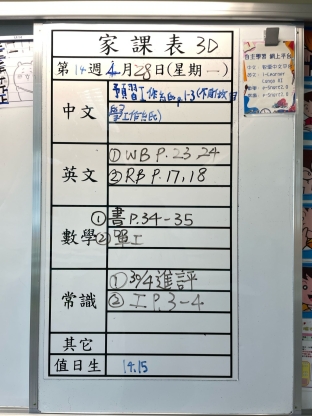 家課表 3D
第14週 4月28日(星期一)
中文
預習工作紙p.1-3
英文
① WB P.23,24
② RB P.17,18
數學
① 書P.34-35
② 單工
常識
① 30/4進評
② 工P.3-4
其它
值日生
14.15
自主學習 網上平台